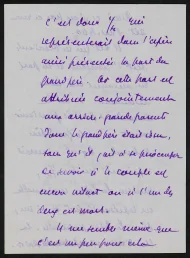 c'est donc 1/4 qui
représenterait dans l'opinion
ainsi présentée la part du
grand père. Or cette part est
attribuée conjointement
aux arrière-grands-parents
dont le grand père était
sans qu'il y ait à se préoccuper
de savoir si le couple est
encore vivant ou si l'un des
deux est mort.
Il me semble même que
c'est un peu pour